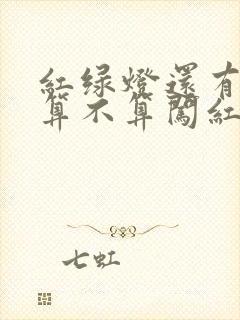 紅绿燈還有
算不算闖紅
七虹